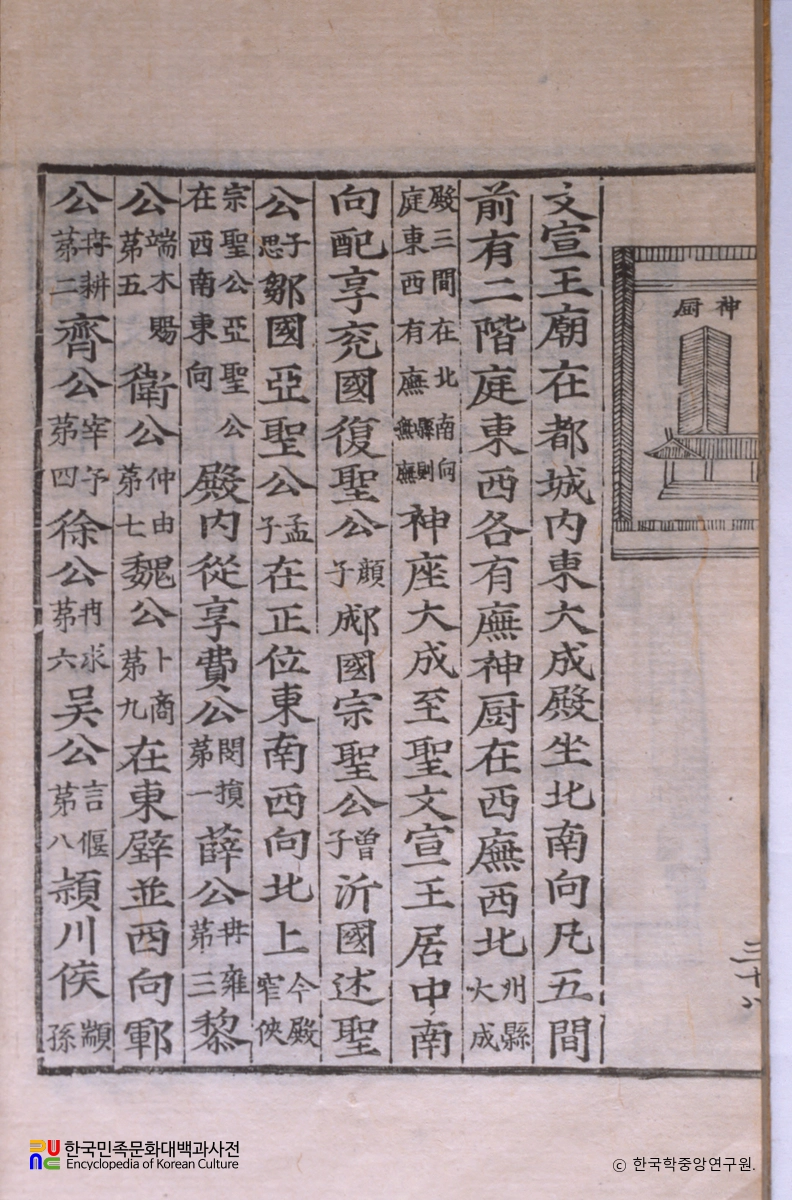 神厨
三十八
文宣王廟在都城內東大成殿坐北南向凡五間
前有二階庭東西各有廡神厨在西廡西北州縣大成
殿三間在北南向庭東西有廡縣則無廡神座大成至聖文宣王居中南
向配享兗國復聖公顔子郕國宗聖公曾子沂國述聖
公子思鄒國亞聖公孟子在正位東南西向北上今殿窄俠
宗聖公亞聖公在西南東向殿內從享費公閔損苐一薛公冉雍苐三黎
公端木賜苐五衛公仲由苐七魏公卜商苐九在東壁並西向鄆
公冉耕苐二齊公宰予苐四徐公冉求苐六吳公言偃苐八潁川侯顓孫
한국민족문화대백과사전
Encyclopedia of Korean Culture
ⓒ 한국학중앙연구원.